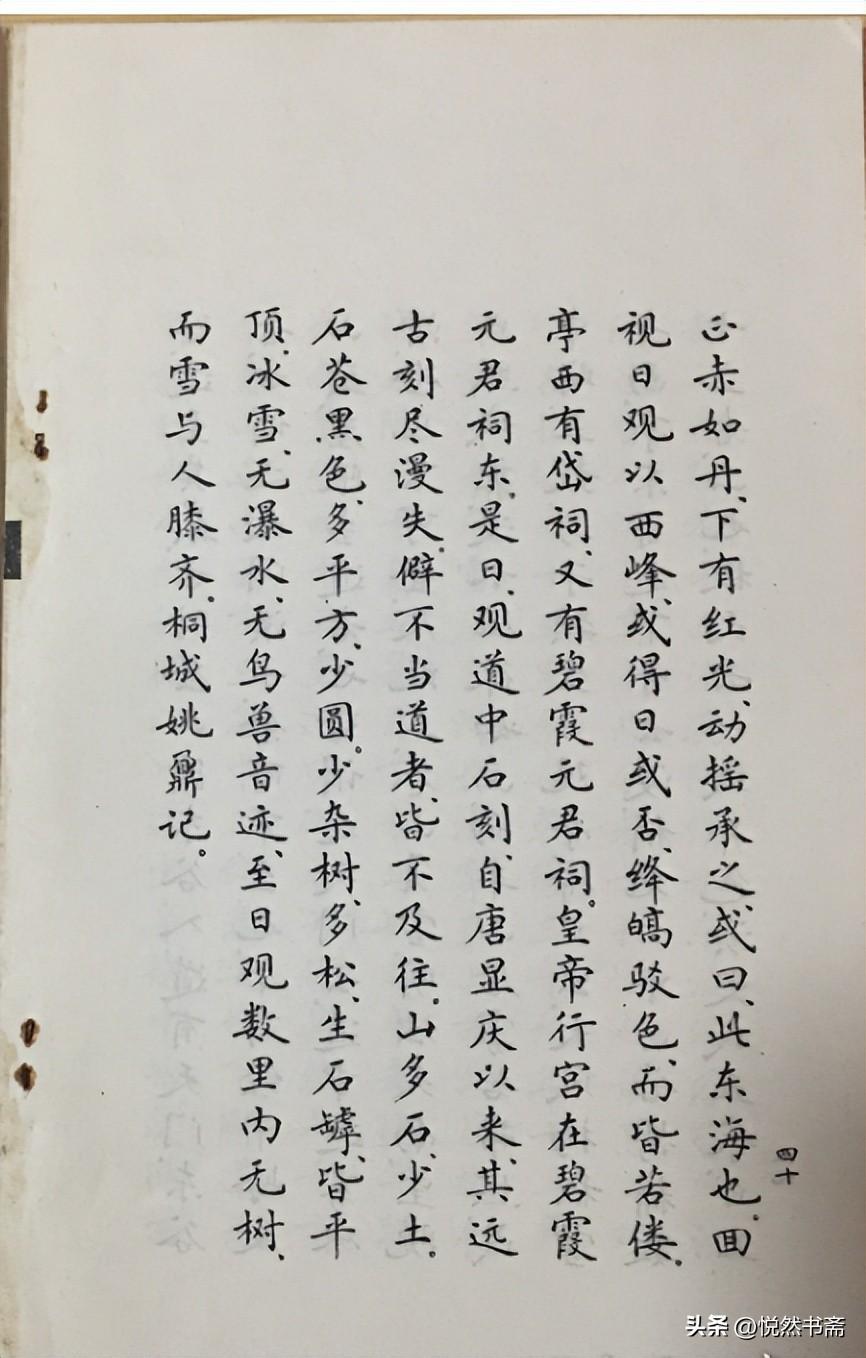 正赤如丹、下有红光、动摇承之、或曰、此东海也。回
视日观以西峰、或得日或否、绛皜驳色、而皆若偻。
亭西有岱祠、又有碧霞元君祠。皇帝行宫在碧霞
元君祠东。是日、观道中石刻、自唐显庆以来、其远
古刻尽漫失。僻不当道者、皆不及往。山多石、少土。
石苍黑色、多平方、少圆。少杂树、多松、生石罅、皆平
顶、冰雪、无瀑水、无鸟兽音迹、至日观数里内无树、
而雪与人膝齐。桐城姚鼐记。
四十
头条 @悦然书斋